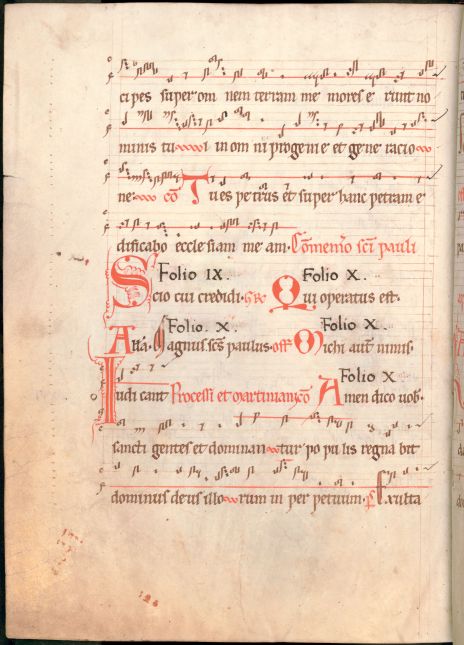 cipes super om nem terram me mores e runt no
minis tu i in om ni progenie et ge ne racio
ne. co Tu es petrus et super hanc petram e
dificabo ecclesiam me am. Comemo sci pauli
Folio IX. Folio X.
Scio cui credidi. Qui operatus est.
Folio. X. Folio. X.
Alla. Magnus scs paulus. off Michi aut nimis.
Folio X
Iudi cant Processi et martiniani co Amen dico vob.
sancti gentes et dominan tur po pu lis regna bit
dominus deus illo rum in per petuum. ps Exulta
126